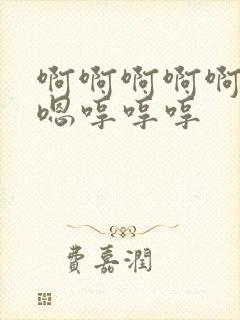 啊啊啊啊啊
嗯哼哼哼
费嘉潤